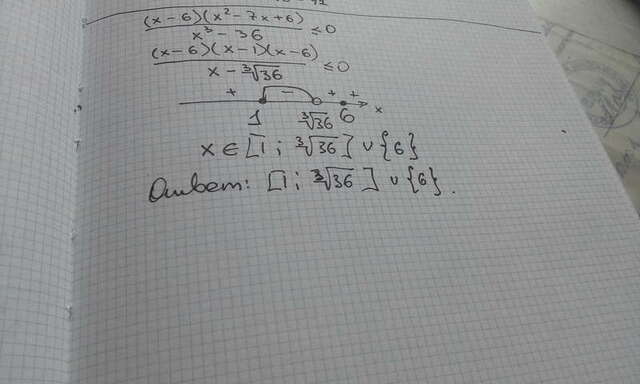 (x-6)(x²-7x+6)/(x³-36) ≤0
(x-6)(x-1)(x-6)/(x-³√36) ≤0
+ - + +
1 ³√36 6 x
x ∈ [1; ³√36] ∪ {6}
Ответ: [1; ³√36] ∪ {6}.